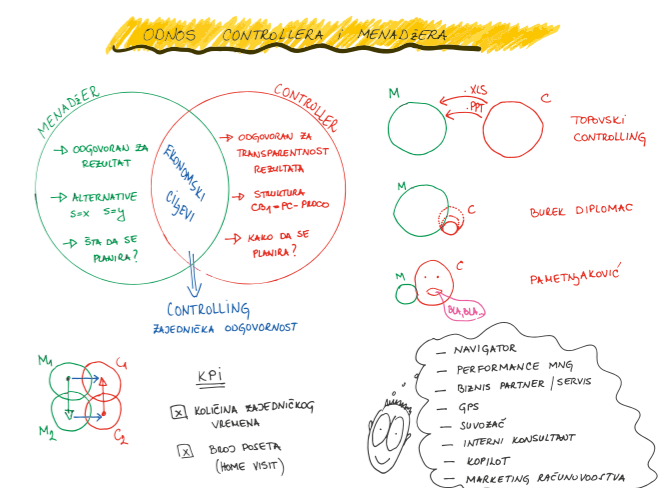 ODNOS CONTROLLERA i MENADŽERA
MENADŽER
→ ODGOVORAN ZA
REZULTAT
→ ALTERNATIVE
S=X S=Y
→ ŠTA DA SE
PLANIRA?
EKONOMSKI
CILJEVI
CONTROLLER
→ ODGOVORAN ZA
TRANSPARENTNOST
REZULTATA
→ STRUKTURA
→ KAKO DA SE
PLANIRA?
CONTROLLING
ZAJEDNIČKA ODGOVORNOST
M
.XLS
.PPT
C
TOPOVSKI
CONTROLLING
M
C
BUREK DIPLOMAC
M
C
BLA, BLA...
PAMETNJAKOVIĆ
M1
C1
M2
C2
KPi
X KOLIČINA ZAJEDNIČKOG
VREMENA
X BROJ POSETA
(HOME VISIT)
— NAVIGATOR
— PERFORMANCE MNG
— BIZNIS PARTNER / SERVIS
— GPS
— SUVOZAČ
— INTERNI KONSULTANT
— KOPILOT
— MARKETING RAČUNOVODSTVA